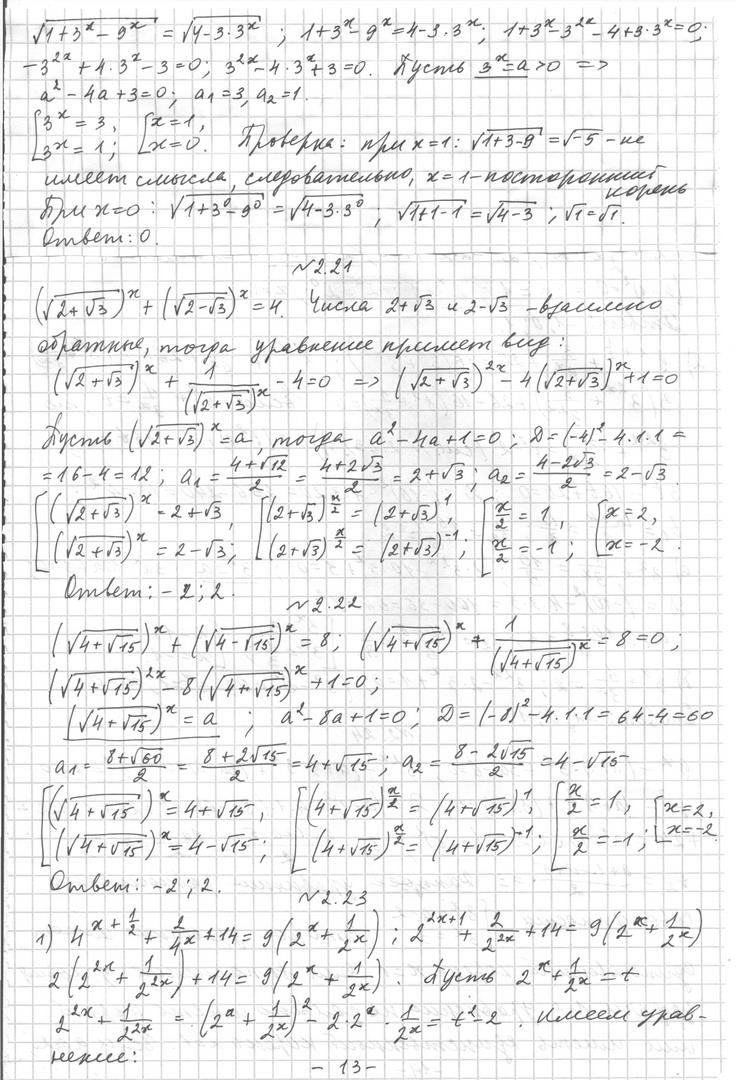 √(1+3^x−9^x) = √(4−3·3^x) ; 1+3^x−9^x=4−3·3^x; 1+3^x−3^{2x}−4+3·3^x=0;
−3^{2x}+4·3^x−3=0; 3^{2x}−4·3^x+3=0. Пусть 3^x=a>0 =>
a²−4a+3=0; a₁=3, a₂=1.
[3^x=3, 3^x=1; [x=1, x=0. Проверка: при x=1: √(1+3−9)=√(−5) − не
имеет смысла, следовательно, x=1−посторонний
корень
При x=0: √(1+3⁰−9⁰)=√(4−3·3⁰), √(1+1−1)=√(4−3); √1=√1.
Ответ: 0.
№2.21
(√(2+√3))^x+(√(2−√3))^x=4. Числа 2+√3 и 2−√3 −взаимно
обратные, тогда уравнение примет вид:
(√(2+√3))^x + 1/(√(2+√3))^x −4=0 => (√(2+√3))^{2x}−4(√(2+√3))^x+1=0
Пусть (√(2+√3))^x=a, тогда a²−4a+1=0; D=(−4)²−4·1·1=
=16−4=12; a₁=(4+√12)/2=(4+2√3)/2=2+√3; a₂=(4−2√3)/2=2−√3.
[(√(2+√3))^x=2+√3, [(2+√3)^{x/2}=(2+√3)^1, [x/2=1, [x=2,
(√(2+√3))^x=2−√3; (2+√3)^{x/2}=(2+√3)^{−1}; x/2=−1; x=−2.
Ответ: −2; 2.
№2.22
(√(4+√15))^x+(√(4−√15))^x=8; (√(4+√15))^x + 1/(√(4+√15))^x =8=0;
(√(4+√15))^{2x}−8(√(4+√15))^x+1=0;
(√(4+√15))^x=a ; a²−8a+1=0; D=(−8)²−4·1·1=64−4=60
a₁=(8+√60)/2=(8+2√15)/2=4+√15; a₂=(8−2√15)/2=4−√15
[(√(4+√15))^x=4+√15, [(4+√15)^{x/2}=(4+√15)^1, [x/2=1, [x=2,
(√(4+√15))^x=4−√15; (4+√15)^{x/2}=(4+√15)^{−1}; x/2=−1; x=−2.
Ответ: −2; 2.
№2.23
1) 4^{x+1/2}+2/4^x+14=9(2^x+1/2^x); 2^{2x+1}+2/2^{2x}+14=9(2^x+1/2^x)
2(2^{2x}+1/2^{2x})+14=9(2^x+1/2^x). Пусть 2^x+1/2^x=t
2^{2x}+1/2^{2x}=(2^x+1/2^x)²−2·2^x·1/2^x=t²−2. Имеем урав-
нение:
−13−